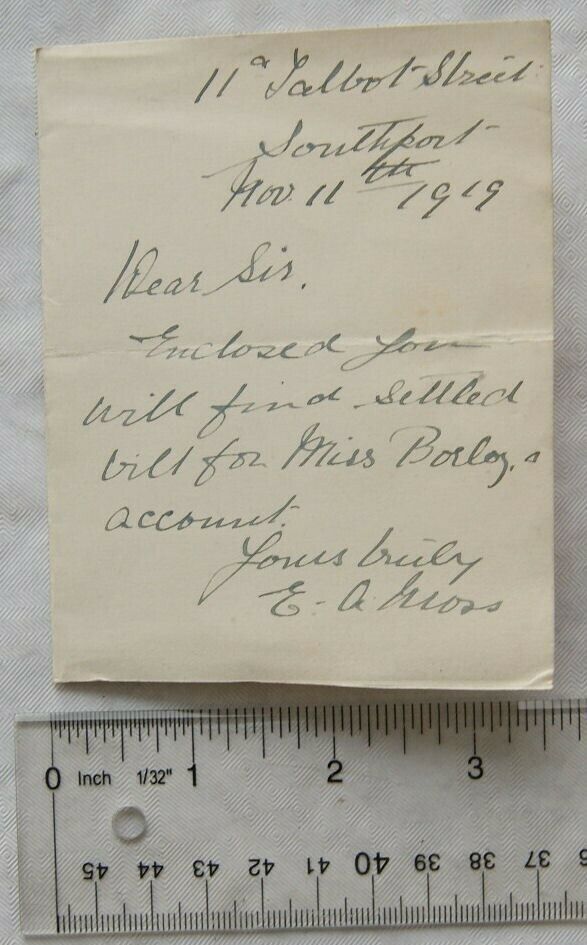 11a Talbot Street
Southport
Nov. 11th 1919
Dear Sir.
Enclosed you
will find settled
bill for Miss
account.
Yours truly
E. A. Moss
0 Inch 1/32" 1 2 3
45 44 43 42 41 40 39 38 37